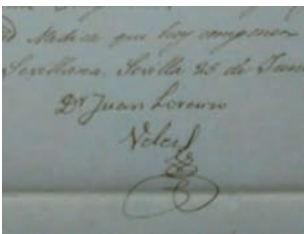 Medica que hoy componen
Sevillana. Sevilla 25 de
Dr Juan Lorenzo
Velez